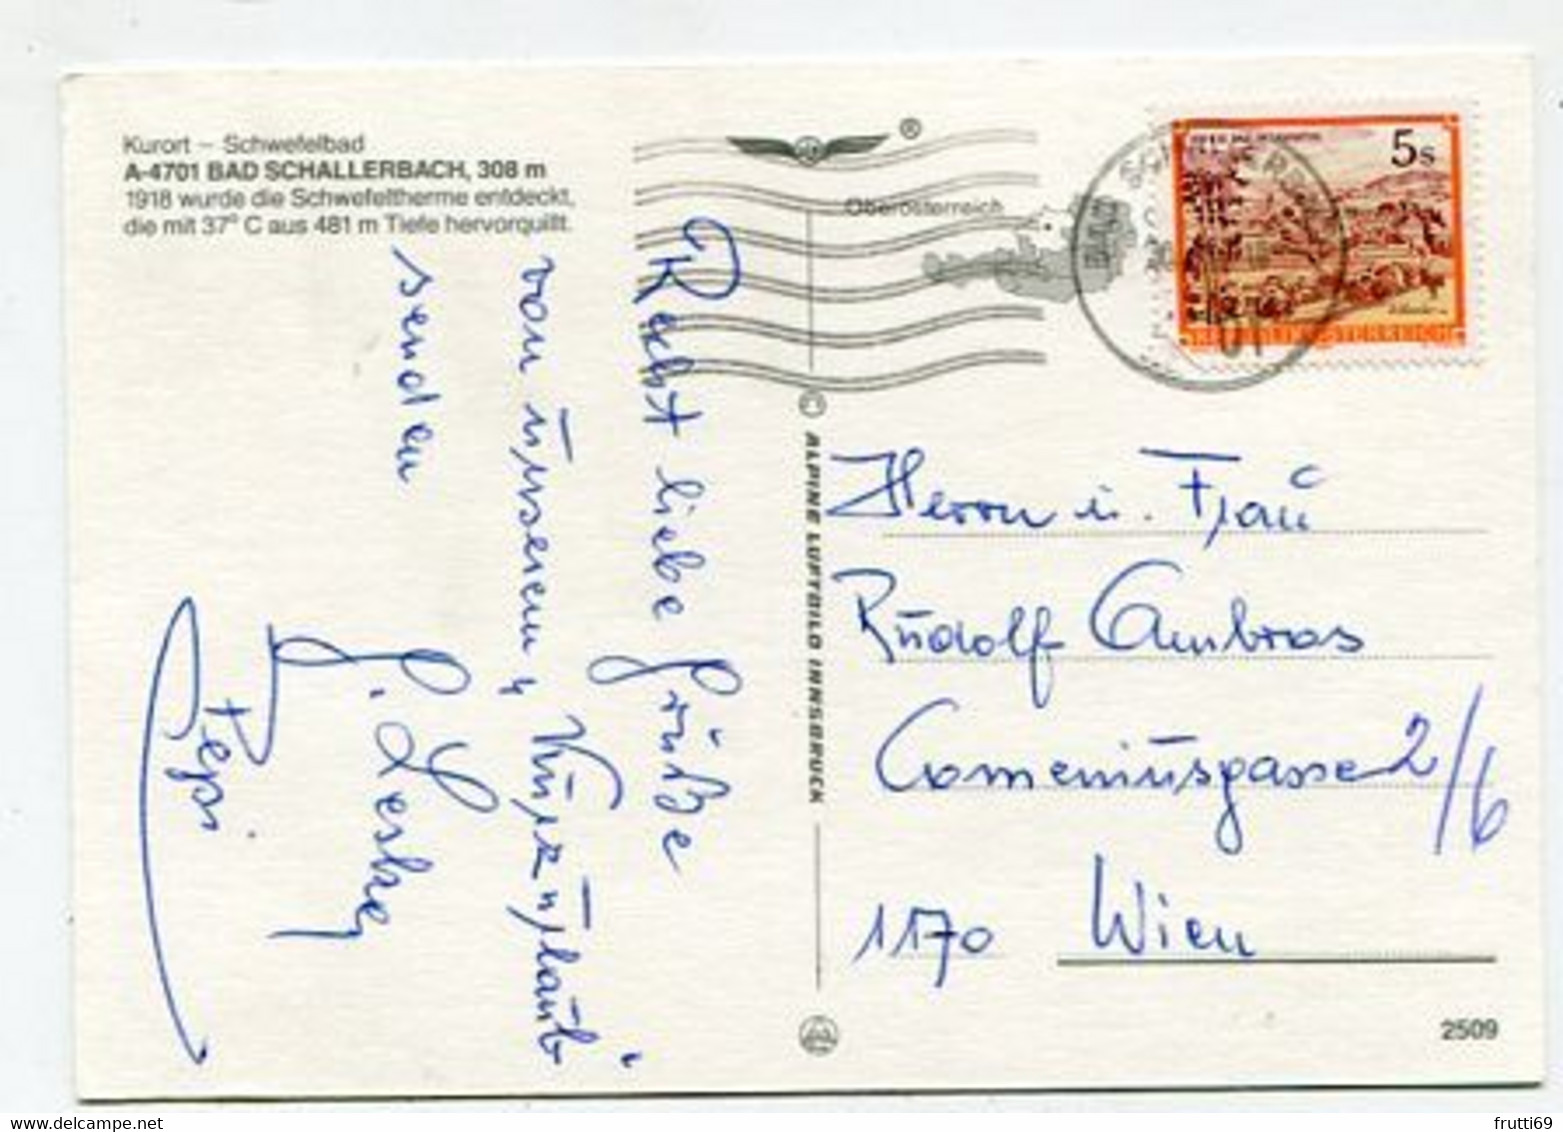 Kurort – Schwefelbad
A-4701 BAD SCHALLERBACH, 308 m
1918 wurde die Schwefeltherme entdeckt,
die mit 37° C aus 481 m Tiefe hervorquillt.
®
Oberösterreich
5s
01
Recht liebe Grüße
von unserem „Kurzurlaub“
senden
Pepi
ALPINE LUFTBILD INNSBRUCK
Herrn u. Frau
Rudolf Ambros
Comeniusgasse 2/6
1170 Wien
2509
frutti69